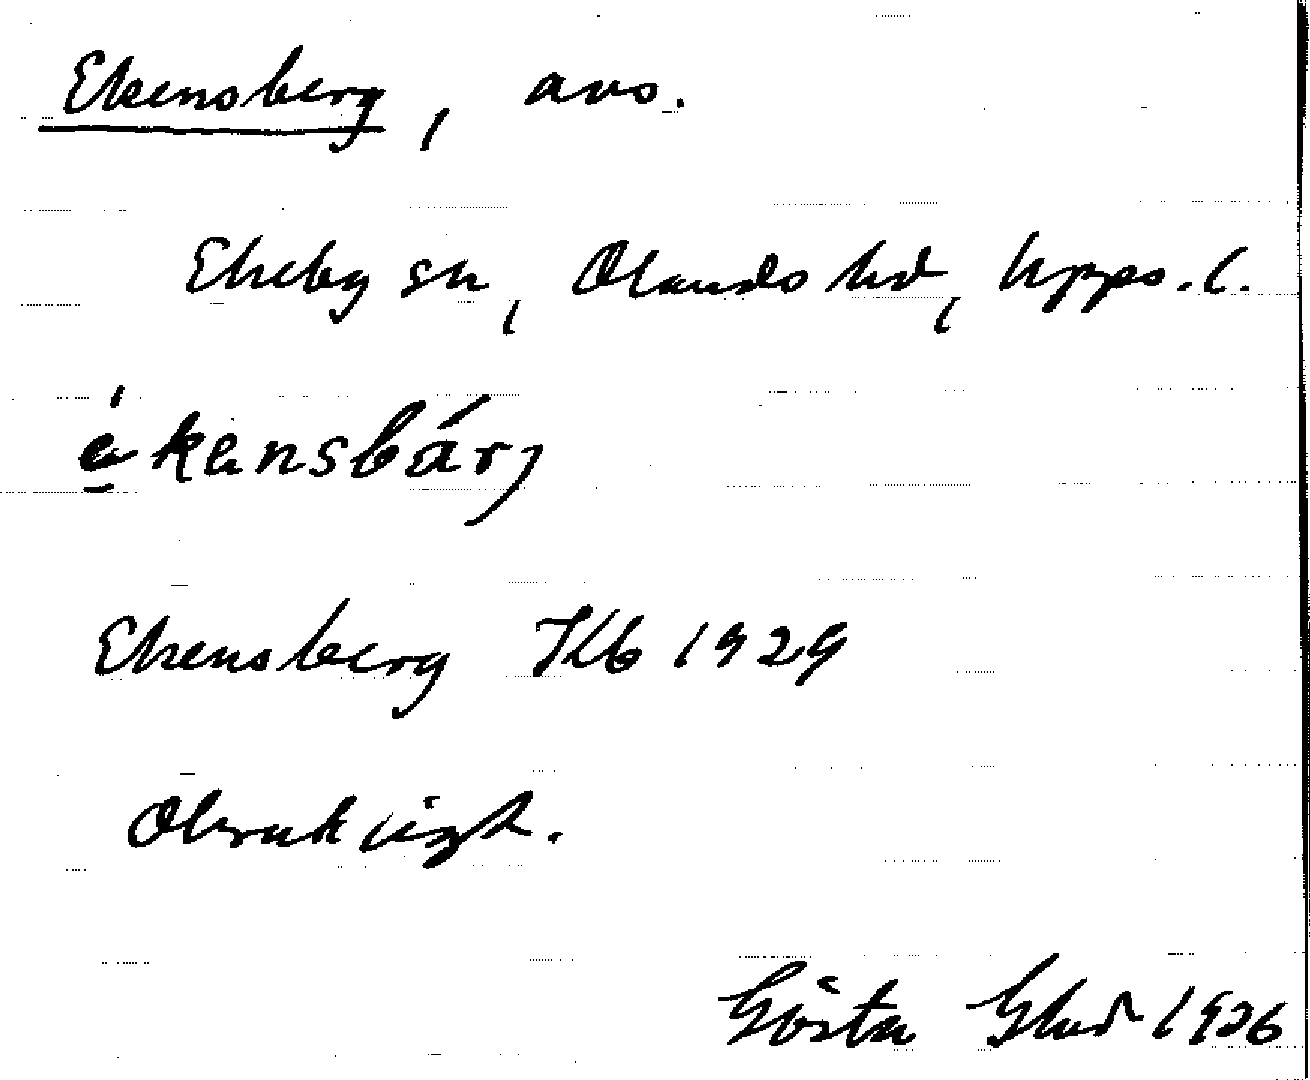 Ekensberg, avs.
Ekeby sn, Olands hd, Upps. l.
ékensbárj
Ekensberg Kb 1929
Obruk ligh.
Gösta 1936